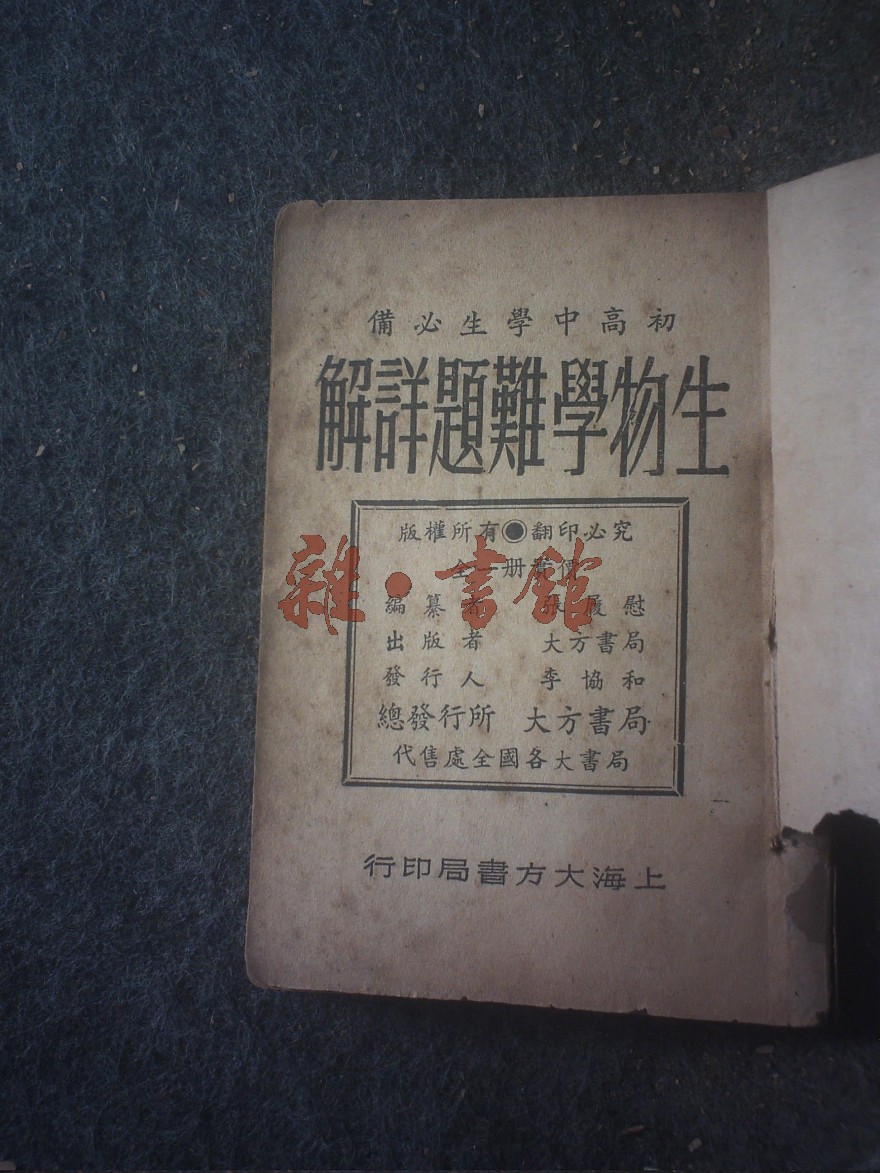 初高中學生必備
生物學難題詳解
版權所有●翻印必究
全一册價
編纂者 張履慰
出版者 大方書局
發行人 李協和
總發行所 大方書局
代售處全國各大書局
上海大方書局印行
雜·書館